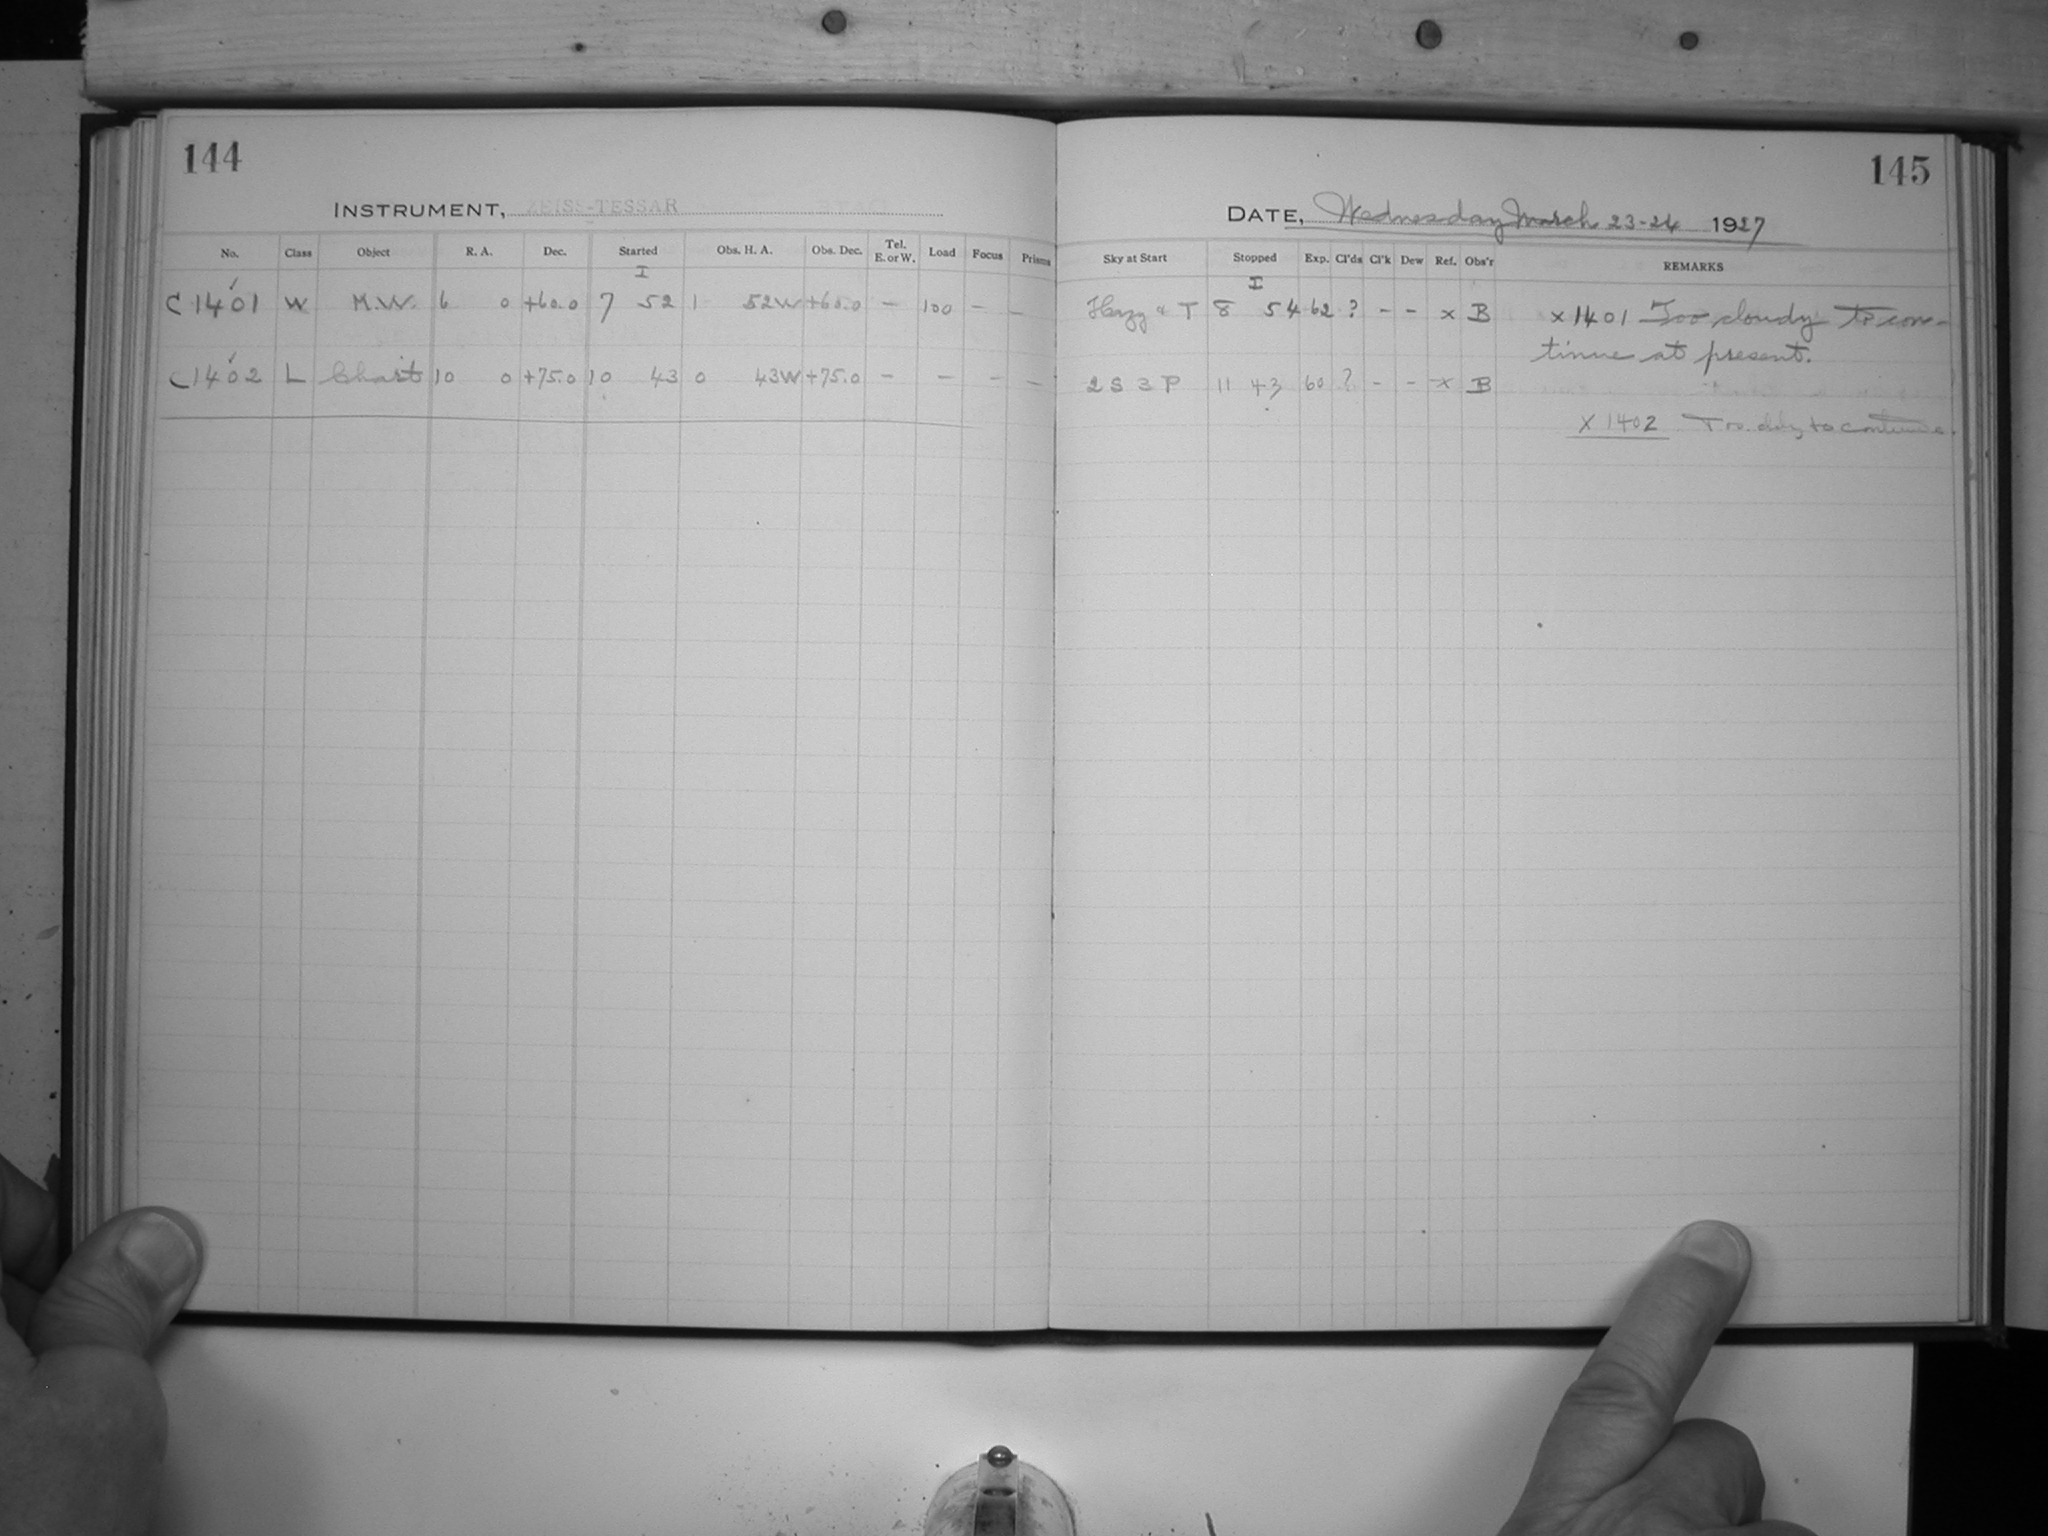 144
145
INSTRUMENT, ZEISS-TESSAR
DATE, Wednesday March 23-24 1927
No. Class Object R. A. Dec. Started Obs. H. A. Obs. Dec. Tel. E. or W. Load Focus Prisms
Sky at Start Stopped Exp. Cl'ds Cl'k Dew Ref. Obs'r REMARKS
I
I
C 1401 W M.W. 6 0 +60.0 7 52 1 52W +60.0 – 100 – –
Hazy & T 8 54 62 ? - - x B x 1401 Too cloudy to con-
tinue at present.
C 1402 L Chart 10 0 +75.0 10 43 0 43W +75.0 – – – –
2 S 3 P 11 43 60 ? - - x B
X 1402 Too to continue.